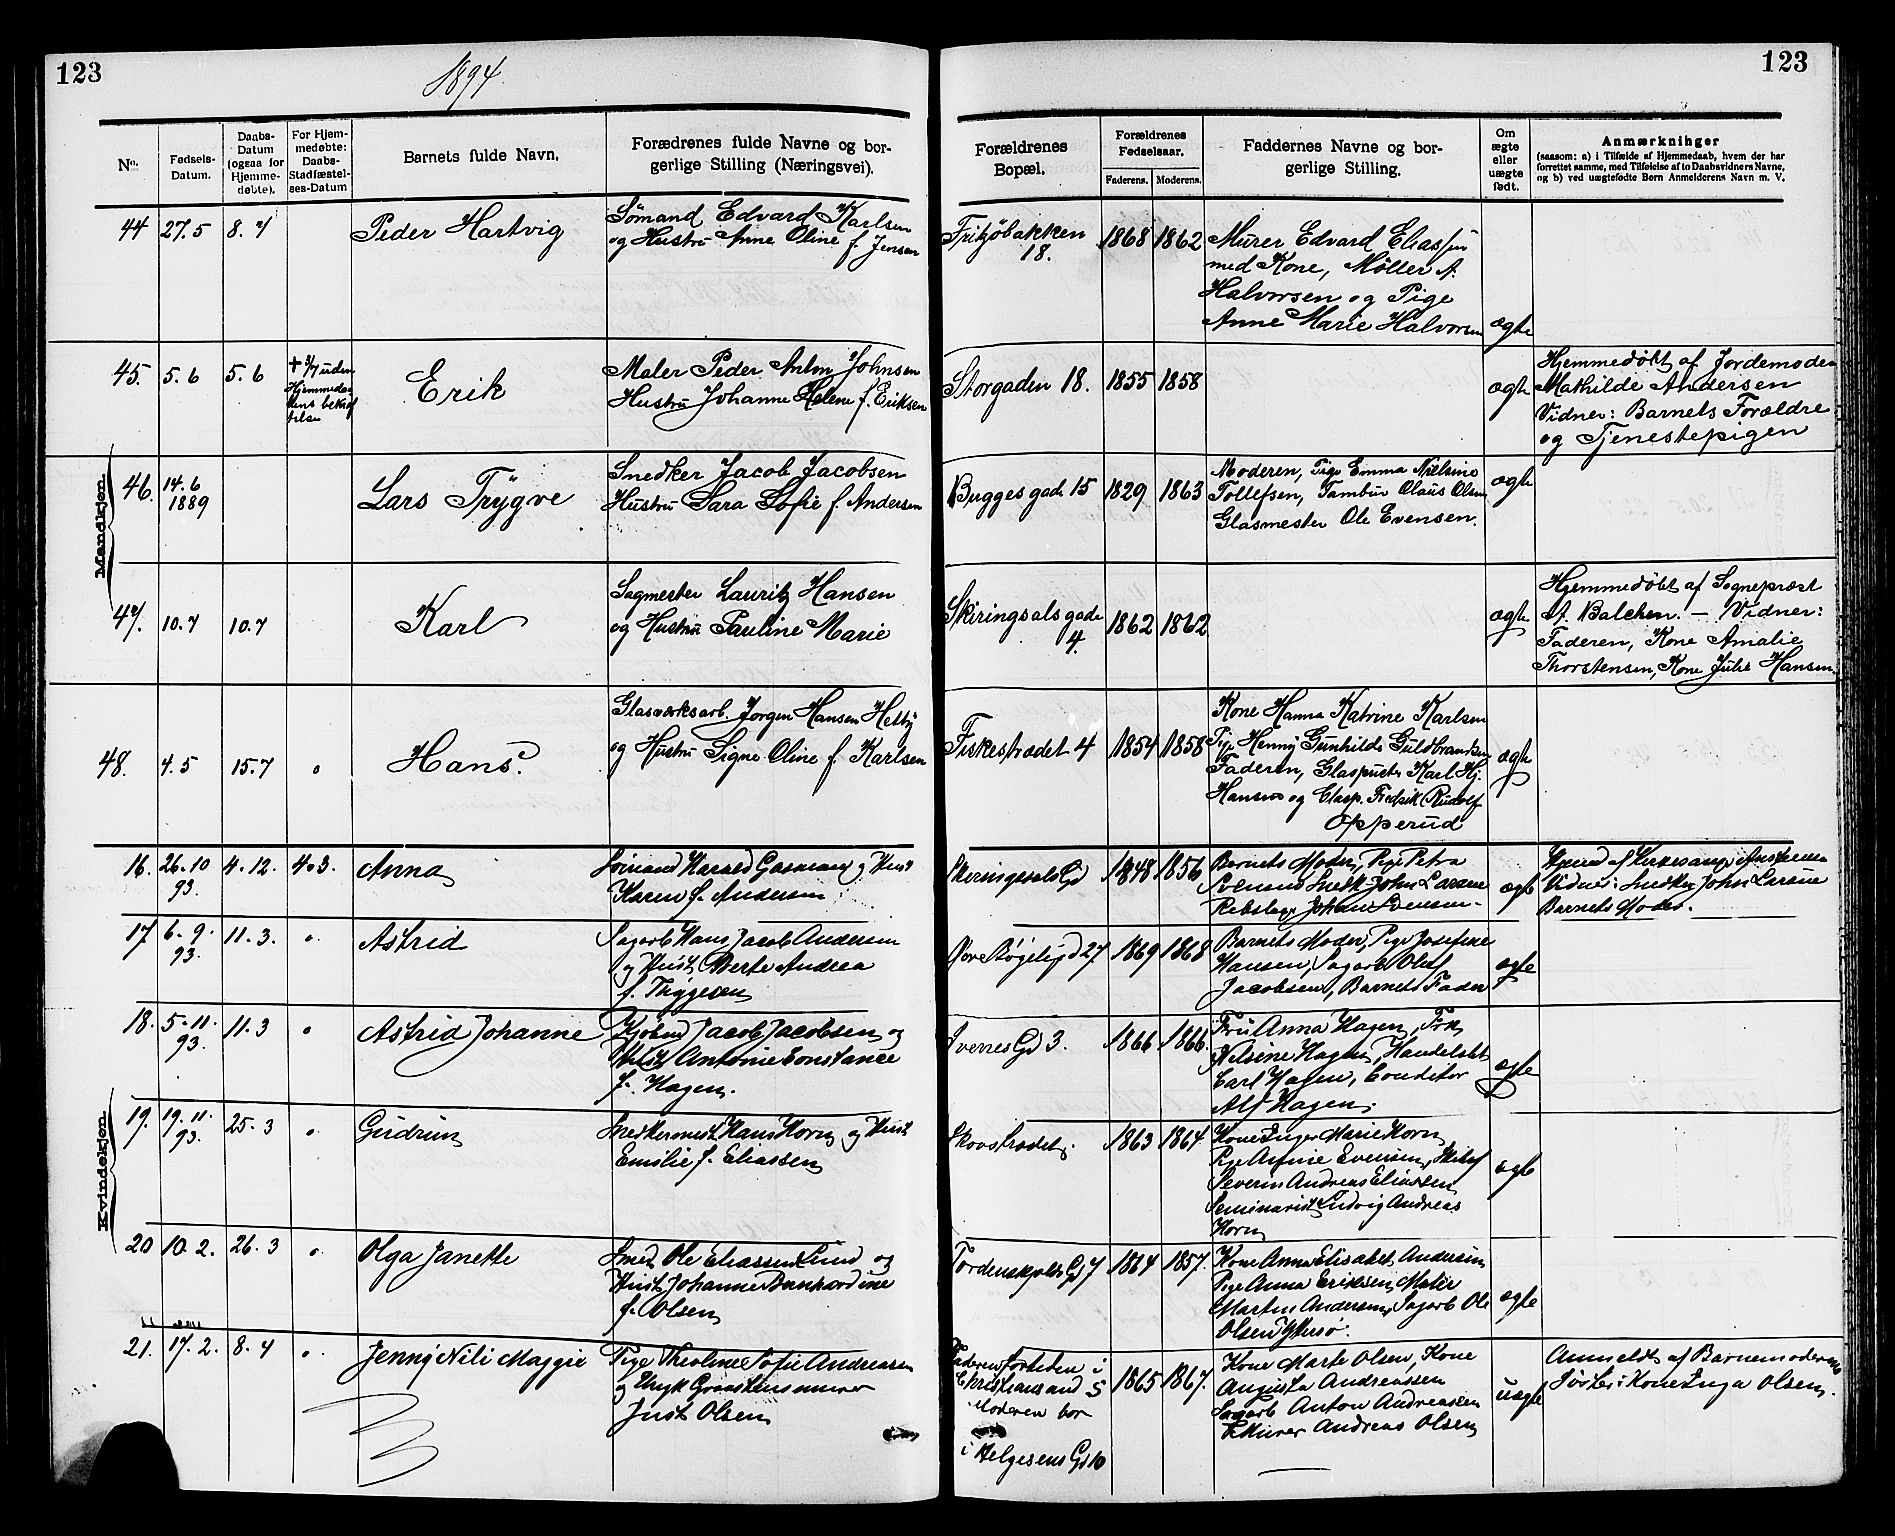 123
1894
123
No.
Fødsels-
Datum.
Daabs-
Datum
(ogsaa for
Hjemme-
døbte).
For Hjem-
medøbte:
Daabs-
Stadfæstel-
ses-Datum
Barnets fulde Navn.
Forædrenes fulde Navne og bor-
gerlige Stilling (Næringsvei).
Forældrenes
Bopæl.
Forældrenes
Fødselsaar.
Faderens. Moderens.
Faddernes Navne og bor-
gerlige Stilling.
Om
ægte
eller
uægte
født.
Anmærkninger
(saasom: a) i Tilfælde af Hjemmedaab, hvem der har
forrettet samme, med Tilføielse af to Daabsvidners Navne,
og b) ved uægtefødte Børn Anmelderens Navn m. V.
Mandkjøn.
44 27.5 8.7 Peder Hartvig
Sømand Edvard Karlsen
og Hustru Anne Oline f. Jensen
Fritzöbakken
18.
1868 1862
Murer Edvard Eliassen
med Kone, Møller A.
Halvorsen og Pige
Anne Marie Halvorsen
ægte
45. 5.6 5.6
uden
Hjemmedaa
bens bekræf
telse
Erik
Maler Peder Anton Johnsen
Hustru Johanne Helene f. Eriksen
Storgaden 18. 1855 1858
ægte
Hjemmedøbt af Jordemoder
Mathilde Andersen
Vidner: Barnets Forældre
og Tjenestepigen
46. 14.6
1889
Lars Trygve
Snedker Jacob Jacobsen
Hustru Sara Sofie f. Andersen
Bugges gade 15 1829 1863
Moderen, Pige Emma Nielsine
Tollefsen, Tambur Olaus Olsen
Glasmester Ole Evensen.
ægte
47. 10.7 10.7 Karl
Sagmester Lauritz Hansen
og Hustru Pauline Marie
Skiringsals gade
4.
1862 1862
ægte
Hjemmedøbt af Sognepræst
A. Balchen. — Vidner:
Faderen, Kone Amalie
Thorstensen, Kone Julie Hansen
48. 4.5 15.7 " Hans.
Glasværksarb. Jørgen Hansen Helby
og Hustru Signe Oline f. Karlsen
Fiskestrædet 4 1854 1858
Kone Hanna Katrine Karlsen
Pige Henny Gunhilda Guldbrandsen
Faderen, Glaspuster Karl Hj.
Hansen og Glasp. Fredrik Rudolf
Opperud
ægte
Kvindekjøn.
16. 26.10
93.
4.12. 4.3. Anna
Harald og Hust
Karen f. Andersen
Skiringssals Gd 1848 1856
Barnets Moder, Pige Petra
Svensen Snedk. John Larsen
Rebslager Johan Svensen.
ægte
Vidner: Snedker John Larsen
Barnets Moder.
17 6.9.
93.
11.3. " Astrid
Sagarb Hans Jacob Andersen
og Hust. Berte Andrea
f. Thygesen
27 1869 1868
Barnets Moder, Pige Josefine
Hansen, Sagarb Oluf
Jacobsen, Barnets Fader
ægte
18. 5.11.
93.
11.3 " Astrid Johanne
Kjøbmd Jacob Jacobsen og
Hust Antonie Constance
f. Hagen.
Svenes Gd 3. 1866 1866.
Fru Anna Hagen, Frk
Nilsine Hagen, Handelsbt
Carl Hagen, Conditor
Alf Hagen.
ægte
19. 19.11.
93.
25.3 " Gudrun
Snedkermest Hans Horn og Hust
Emilie f. Eliassen
Skovstrædet. 1863 1864.
Kone Inger Marie Horn
Pige Evensen,
Severin Andreas Eliassen
Seminarist Ludvig Andreas
Horn
ægte
20 10.2. 26.3 " Olga Janette
Smed Ole Eliassen Lund og
Hust. Johanne Bernhardine
f. Olsen
Tordenskjolds Gd 7 1864 1857.
Kone Anna Elisabet Andersen
Pige Anna Eriksen, Maler
Martin Andersen, Sagarb Ole
Olsen
ægte
21. 17.2. 8.4 " Jenny Nili Maggie
Pige Theoline Sofie Andreassen
og Ungk
Just Olsen
Faderen fortiden i
Christiansand S
Moderen bor
i Helgesens Gd 10
1865 1867.
Kone Marte Olsen, Kone
Augusta Andreassen
Sagarb Anton Andreassen
Murer Andreas Olsen
uægte
Anmeldt af Barnemoderens
Søster: Kone Inga Olsen.